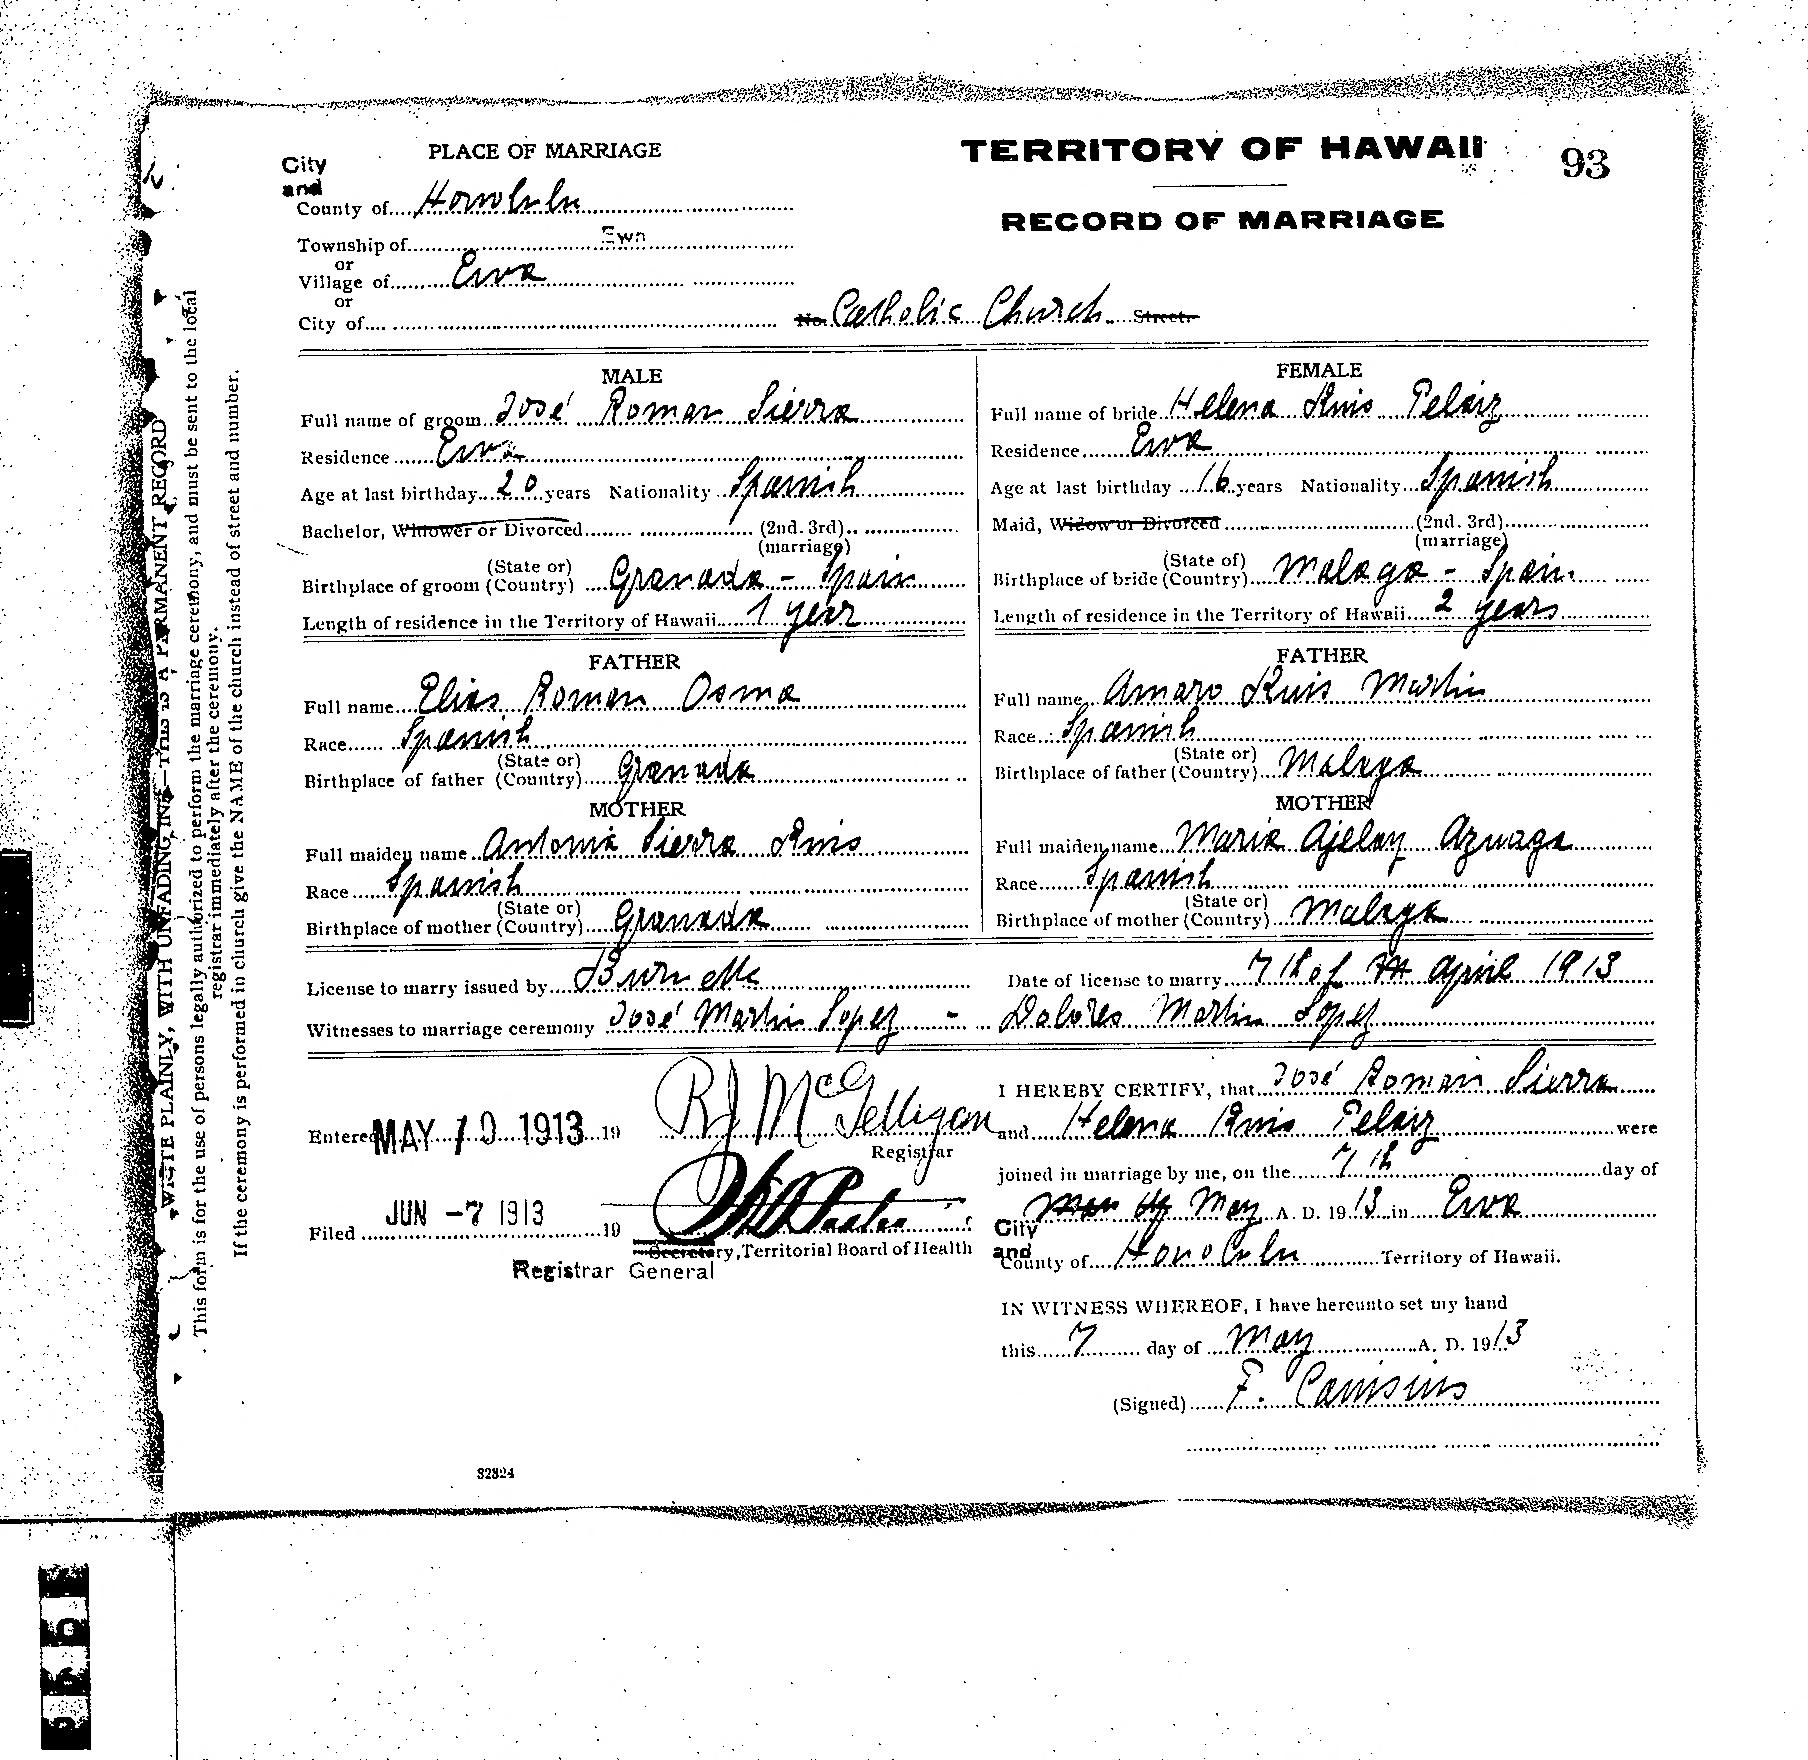 PLACE OF MARRIAGE
TERRITORY OF HAWAII
93
City
and
County of Honolulu
RECORD OF MARRIAGE
Township of Ewa
or
Village of Ewa
or
City of
No. Catholic Church Street.
MALE
Full name of groom José Roman Sierra
Residence Ewa
Age at last birthday 20 years Nationality Spanish
Bachelor, Widower or Divorced (2nd. 3rd)
(marriage)
Birthplace of groom (State or) (Country) Granada - Spain
Length of residence in the Territory of Hawaii 1 year
FATHER
Full name Elias Roman Osma
Race Spanish
Birthplace of father (State or) (Country) Granada
MOTHER
Full maiden name Antonia Sierra Ruis
Race Spanish
Birthplace of mother (State or) (Country) Granada
FEMALE
Full name of bride Helena Ruis Pelaiz
Residence Ewa
Age at last birthday 16 years Nationality Spanish
Maid, Widow or Divorced (2nd. 3rd)
(marriage)
Birthplace of bride (State of) (Country) Malaga - Spain
Length of residence in the Territory of Hawaii 2 years
FATHER
Full name Amaro Ruis Martin
Race Spanish
Birthplace of father (State or) (Country) Malaga
MOTHER
Full maiden name Maria Azuaga
Race Spanish
Birthplace of mother (State or) (Country) Malaga
License to marry issued by
Date of license to marry 7th of April 1913
Witnesses to marriage ceremony José Martin Lopez - Dolores Martin Lopez
Entered MAY 10 1913 19
R J McGelligan
Registrar
Filed JUN -7 1913 19
Secretary, Territorial Board of Health
Registrar General
I HEREBY CERTIFY, that José Roman Sierra
and Helena Ruis Pelaiz were
joined in marriage by me, on the 7th day of
May A. D. 1913 in Ewa
City
and
County of Honolulu Territory of Hawaii.
IN WITNESS WHEREOF, I have hereunto set my hand
this 7 day of May A. D. 1913
(Signed) F. Canisius
32324
WRITE PLAINLY, WITH UNFADING INK—THIS IS A PERMANENT RECORD
This form is for the use of persons legally authorized to perform the marriage ceremony, and must be sent to the local
registrar immediately after the ceremony.
If the ceremony is performed in church give the NAME of the church instead of street and number.